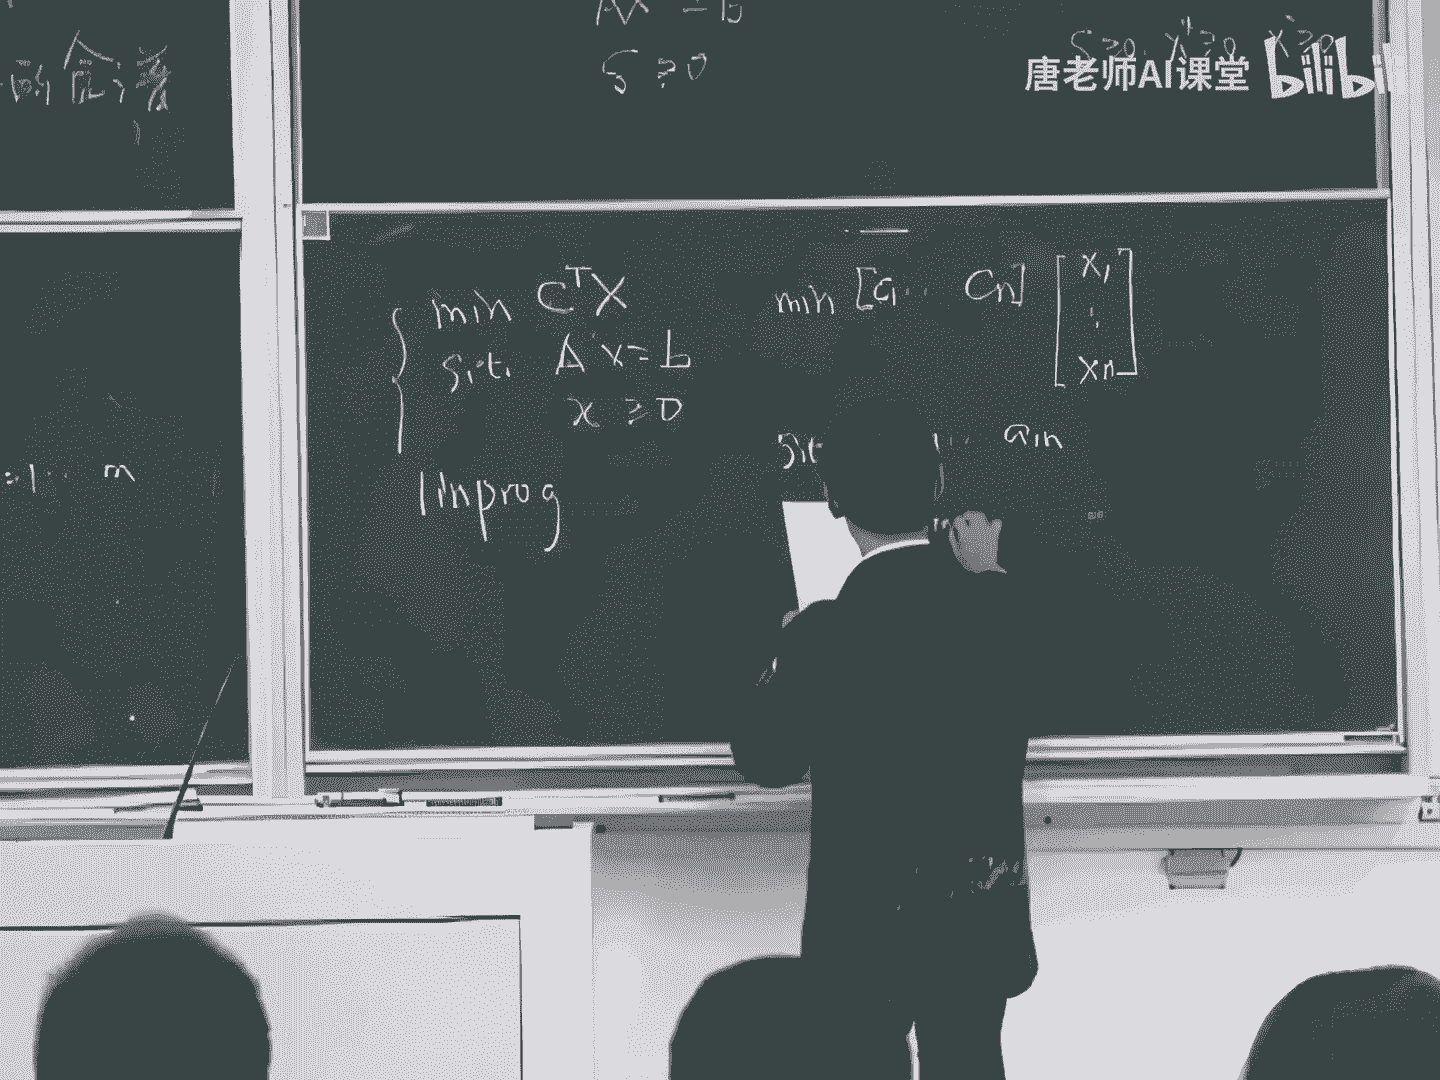 S ≥ 0
S ≥ 0, x⁺ ≥ 0 x⁻ ≥ 0
唐老师AI课堂 bilibili
=1 ... m
min CᵀX
s.t. Ax = b
x ≥ 0
linprog
min [c₁ ... cn] [x₁ ⋮ xn]
s.t. ... a₁n